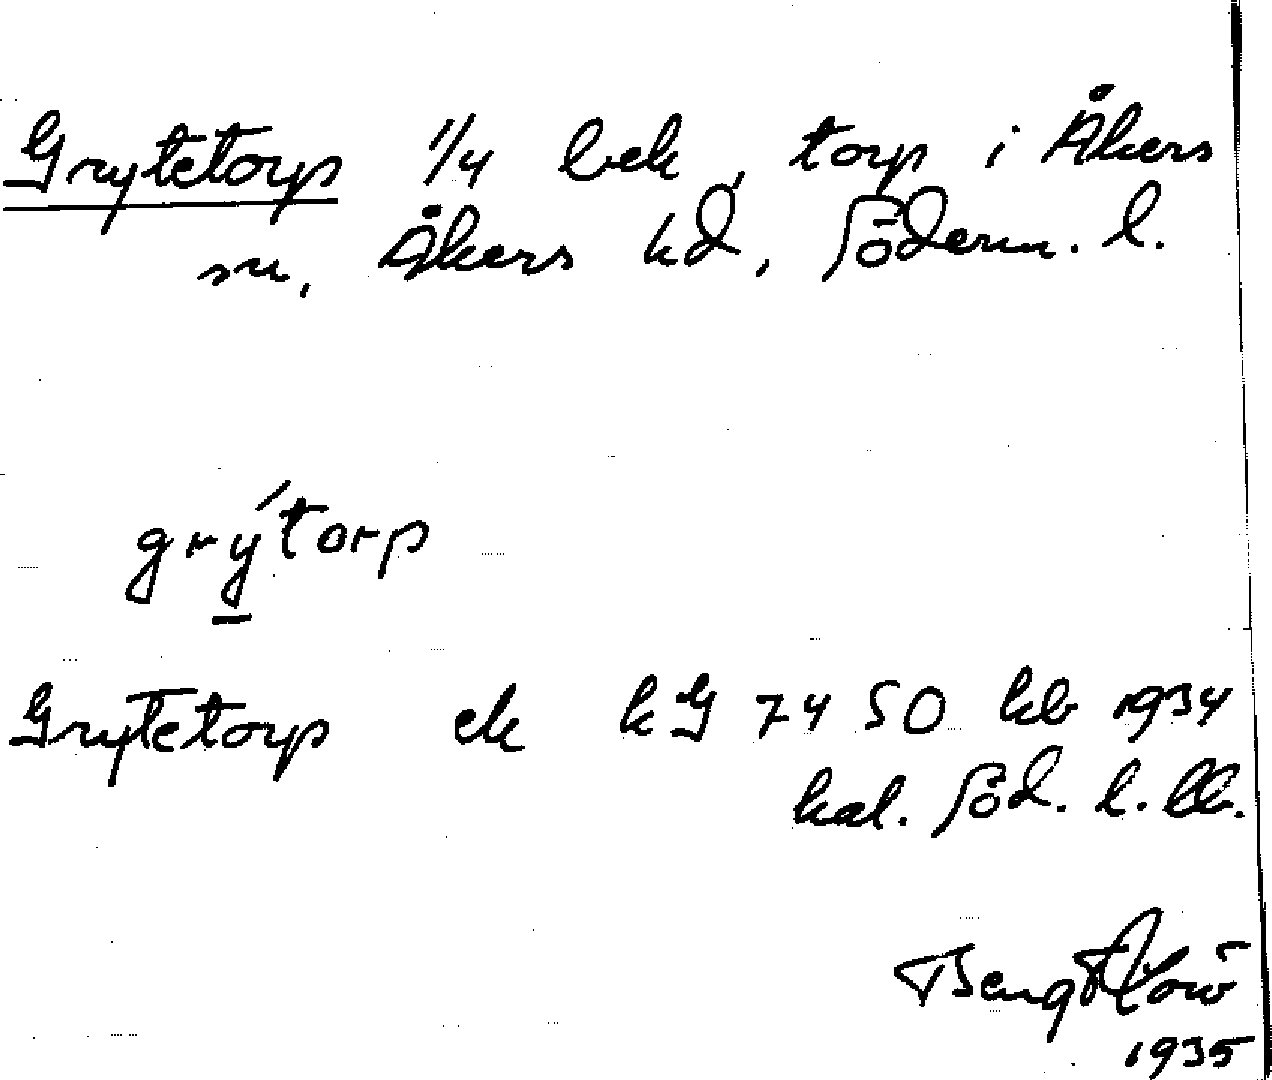 Grytetorp 1/4 bek, torp i Åkers
sn, Åkers hd, Söderm. l.
grýtorp
Grytetorp ek kG 7450 kb 1934
kal. Söd. l. lb.
Bengt
1935